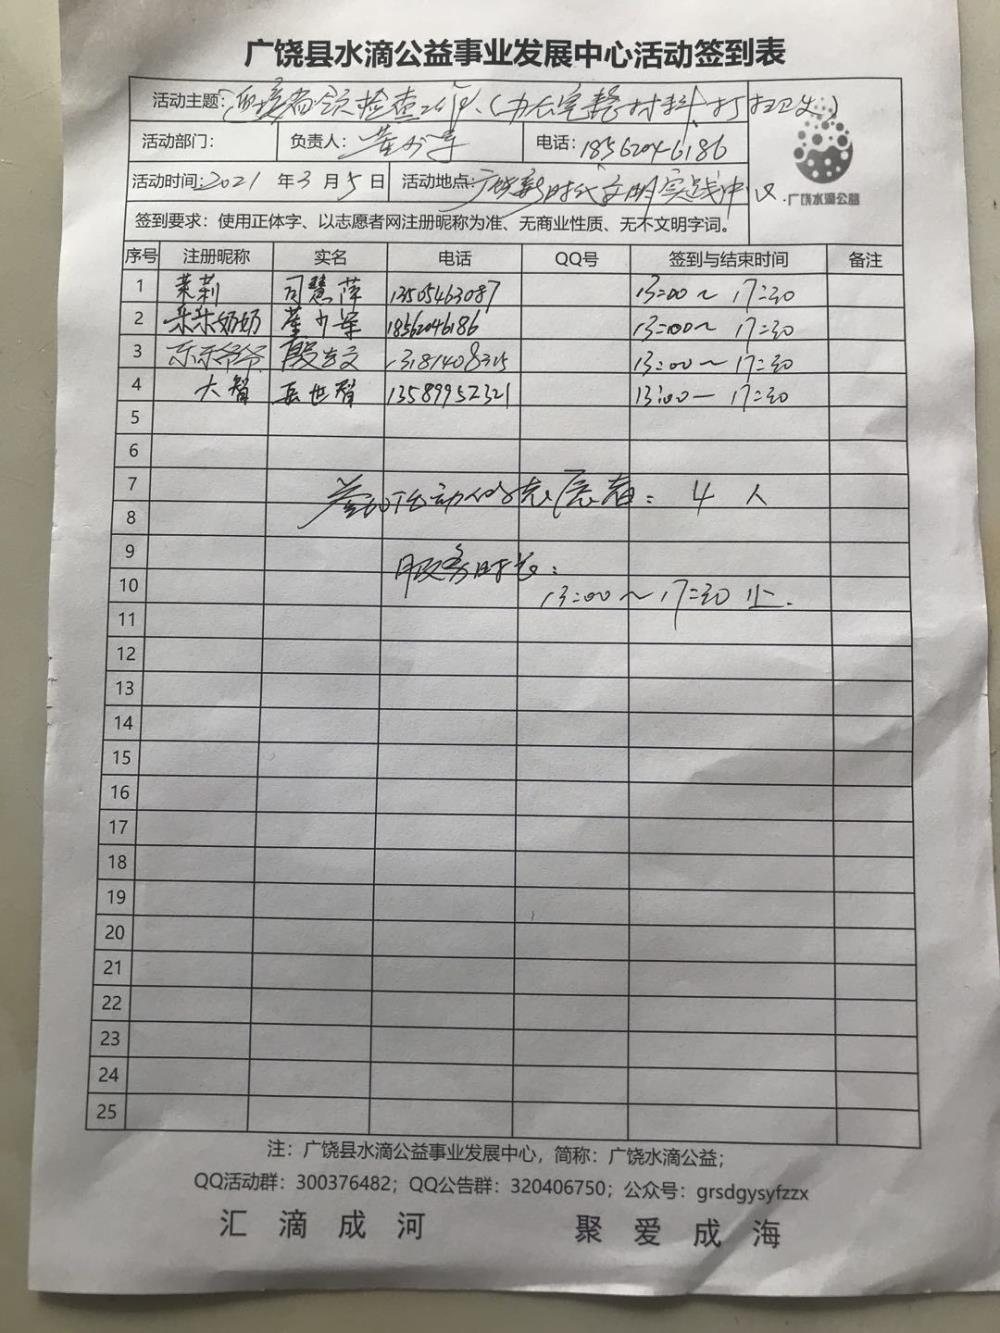 广饶县水滴公益事业发展中心活动签到表
活动主题: 迎接省领检查工作、(办公室整材料打扫卫生)
活动部门: 负责人: 电话: 18562046186
活动时间: 2021 年 3 月 5 日 活动地点: 广饶新时代文明实践中心
广饶水滴公益
签到要求：使用正体字、以志愿者网注册昵称为准、无商业性质、无不文明字词。
序号 注册昵称 实名 电话 QQ号 签到与结束时间 备注
1 茉莉 司慧萍 13505463087 13:00～17:30
2 乐乐奶奶 18562046186 13:00～17:30
3 乐乐爷爷 13181408315 13:00～17:30
4 大智 岳世智 13589952321 13:00—17:30
5
6
7 参加活动的志愿者：4 人
8
9 服务时长：
10 13:00～17:30 止.
11
12
13
14
15
16
17
18
19
20
21
22
23
24
25
注：广饶县水滴公益事业发展中心，简称：广饶水滴公益；
QQ活动群：300376482；QQ公告群：320406750；公众号：grsdgysyfzzx
汇滴成河 聚爱成海